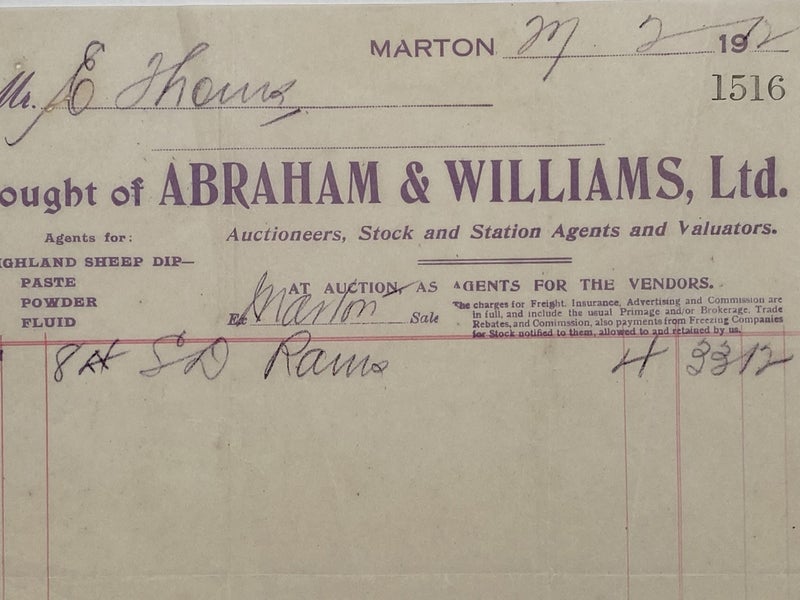 MARTON M 2 1912
Mr. E Thoms
1516
ought of ABRAHAM & WILLIAMS, Ltd.
Agents for:
Auctioneers, Stock and Station Agents and Valuators.
IGHLAND SHEEP DIP—
PASTE
POWDER
FLUID
AT AUCTION, AS AGENTS FOR THE VENDORS.
Ex Marton Sale
The charges for Freight, Insurance, Advertising and Commission are
in full, and include the usual Primage and/or Brokerage, Trade
Rebates, and Comimssion, also payments from Freezing Companies
for Stock notified to them, allowed to and retained by us.
8 SD Rams 4 33 12